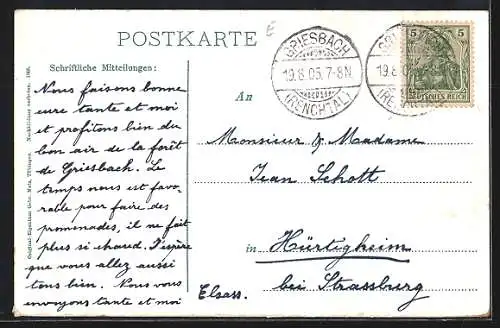 POSTKARTE
Schriftliche Mitteilungen:
Nous faisons bonne
cure tante et moi
et profitons bien du
bon air de la forêt
de Griesbach. Le
temps nous est favo-
rable pour faire des
promenades, il ne fait
plus si chaud. J'espère
que vous allez aussi
tous bien. Nous vous
envoyons tante et moi
GRIESBACH
19.8.05.7-8N
(RENCHTAL)
5 5
DEUTSCHES REICH
An
Monsieur & Madame
Jean Schott
in Hürtigheim
bei Strassburg
Elsass.